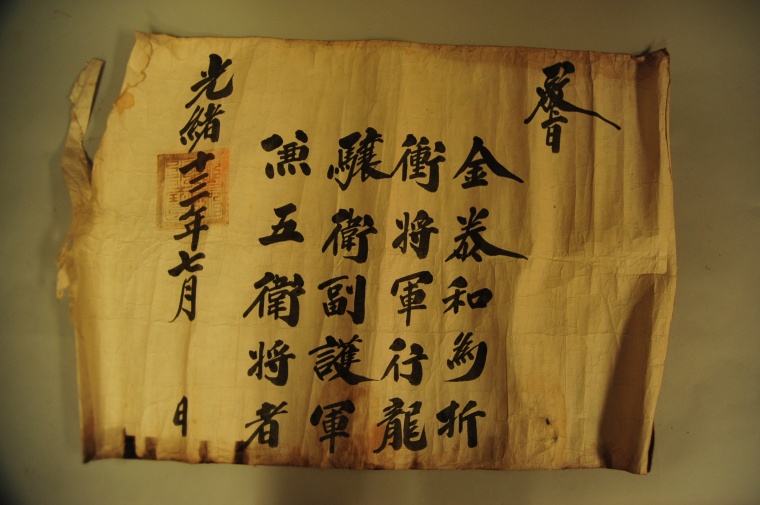 敎旨
金泰和爲折
衝將軍行龍
驤衛副護軍
兼五衛將者
光緖十三年七月　日